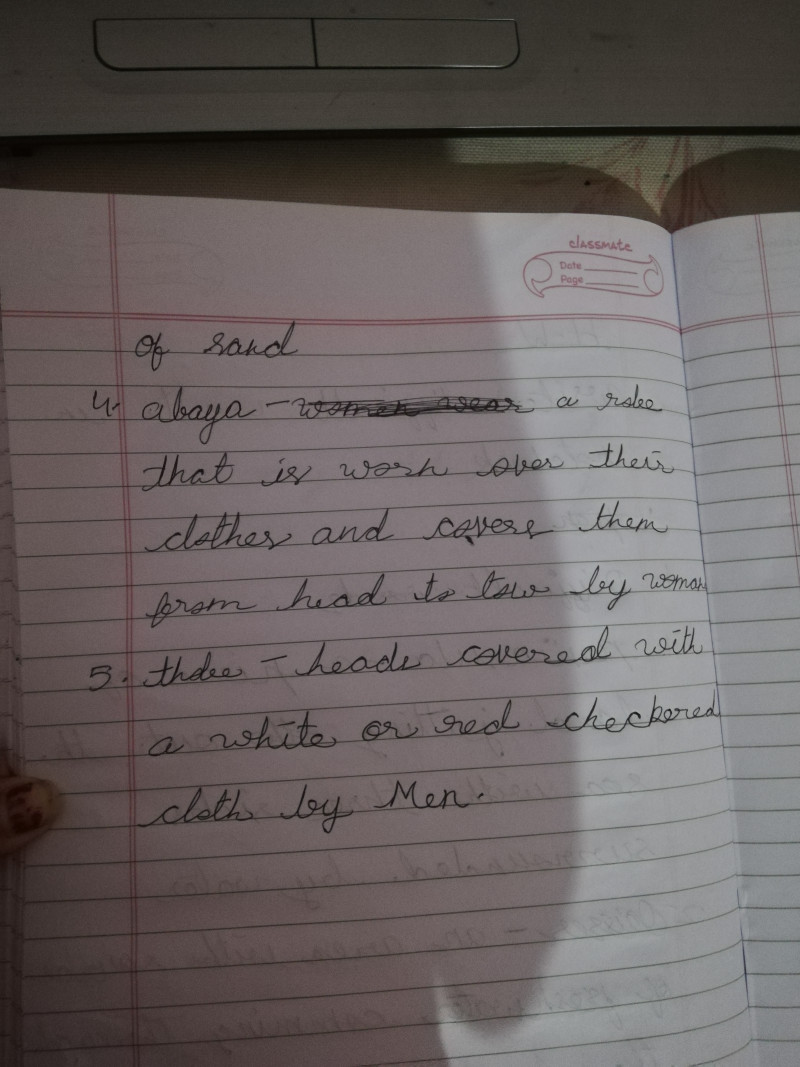 classmate
Date
Page
of sand
4. abaya - women wear a robe
that is worn over their
clothes and covers them
from head to tow by woman
5. thobe - heads covered with
a white or red checkered
cloth by Men.